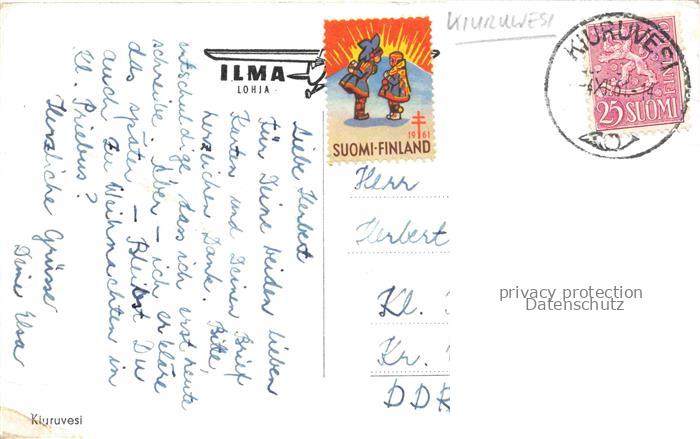 KIURUVESI
KIURUVESI
25 SUOMI
ILMA
LOHJA
1961
SUOMI-FINLAND
Liebe Herbert
Für Deine beiden lieben
Karten und Deinen Brief
herzlichen Dank. Bitte,
entschuldige, dass ich erst heute
schreibe. Aber – ich erkläre
das später – Bleibst Du
auch zu Weihnachten in
Kl. Priebus?
Herzliche Grüsse
Deine Elsa
Herr
Herbert
Kl.
Kr.
DDR
privacy protection
Datenschutz
Kiuruvesi